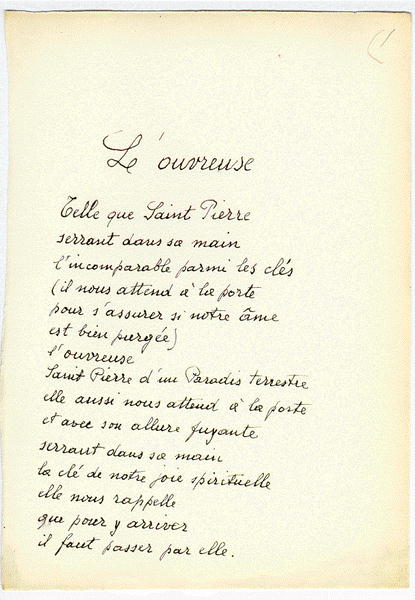 L'ouvreuse
Telle que Saint Pierre
serrant dans sa main
l'incomparable parmi les clés
(il nous attend à la porte
pour s'assurer si notre âme
est bien purgée)
l'ouvreuse
Saint Pierre d'un Paradis terrestre
elle aussi nous attend à la porte
et avec son allure fuyante
serrant dans sa main
la clé de notre joie spirituelle
elle nous rappelle
que pour y arriver
il faut passer par elle.